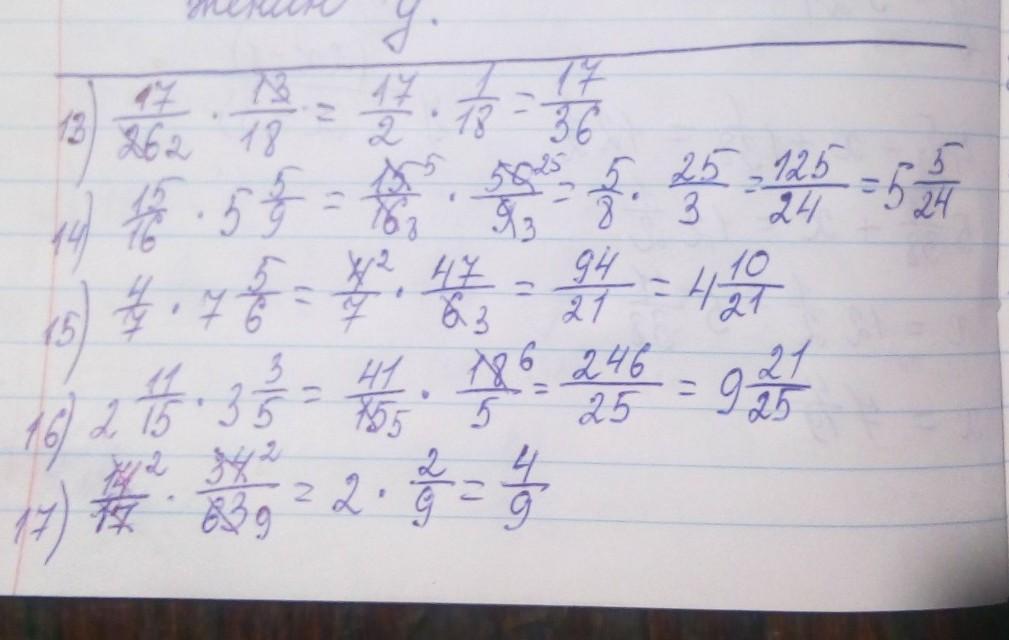 жении у.
13) 17/26 2 · 13/18 = 17/2 · 1/18 = 17/36
14) 15/16 · 5 5/9 = 15 5/16 8 · 50 25/9 3 = 5/8 · 25/3 = 125/24 = 5 5/24
15) 4/7 · 7 5/6 = 4 2/7 · 47/6 3 = 94/21 = 4 10/21
16) 2 11/15 · 3 3/5 = 41/15 5 · 18 6/5 = 246/25 = 9 21/25
17) 14 2/17 · 34 2/63 9 = 2 · 2/9 = 4/9